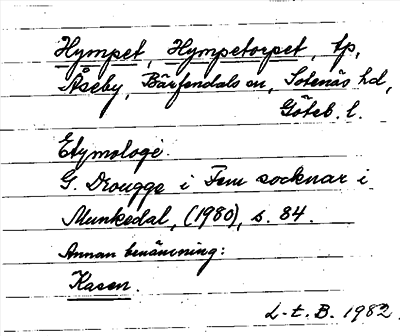 Hympet, Hympetorpet, tp,
Åseby, Bärfendals sn, Sotenäs hd,
Göteb. l.
Etymologi.
G. Drougge i Fem socknar i
Munkedal, (1980), s. 84.
Annan benämning:
Kasen.
L-t. B. 1982.